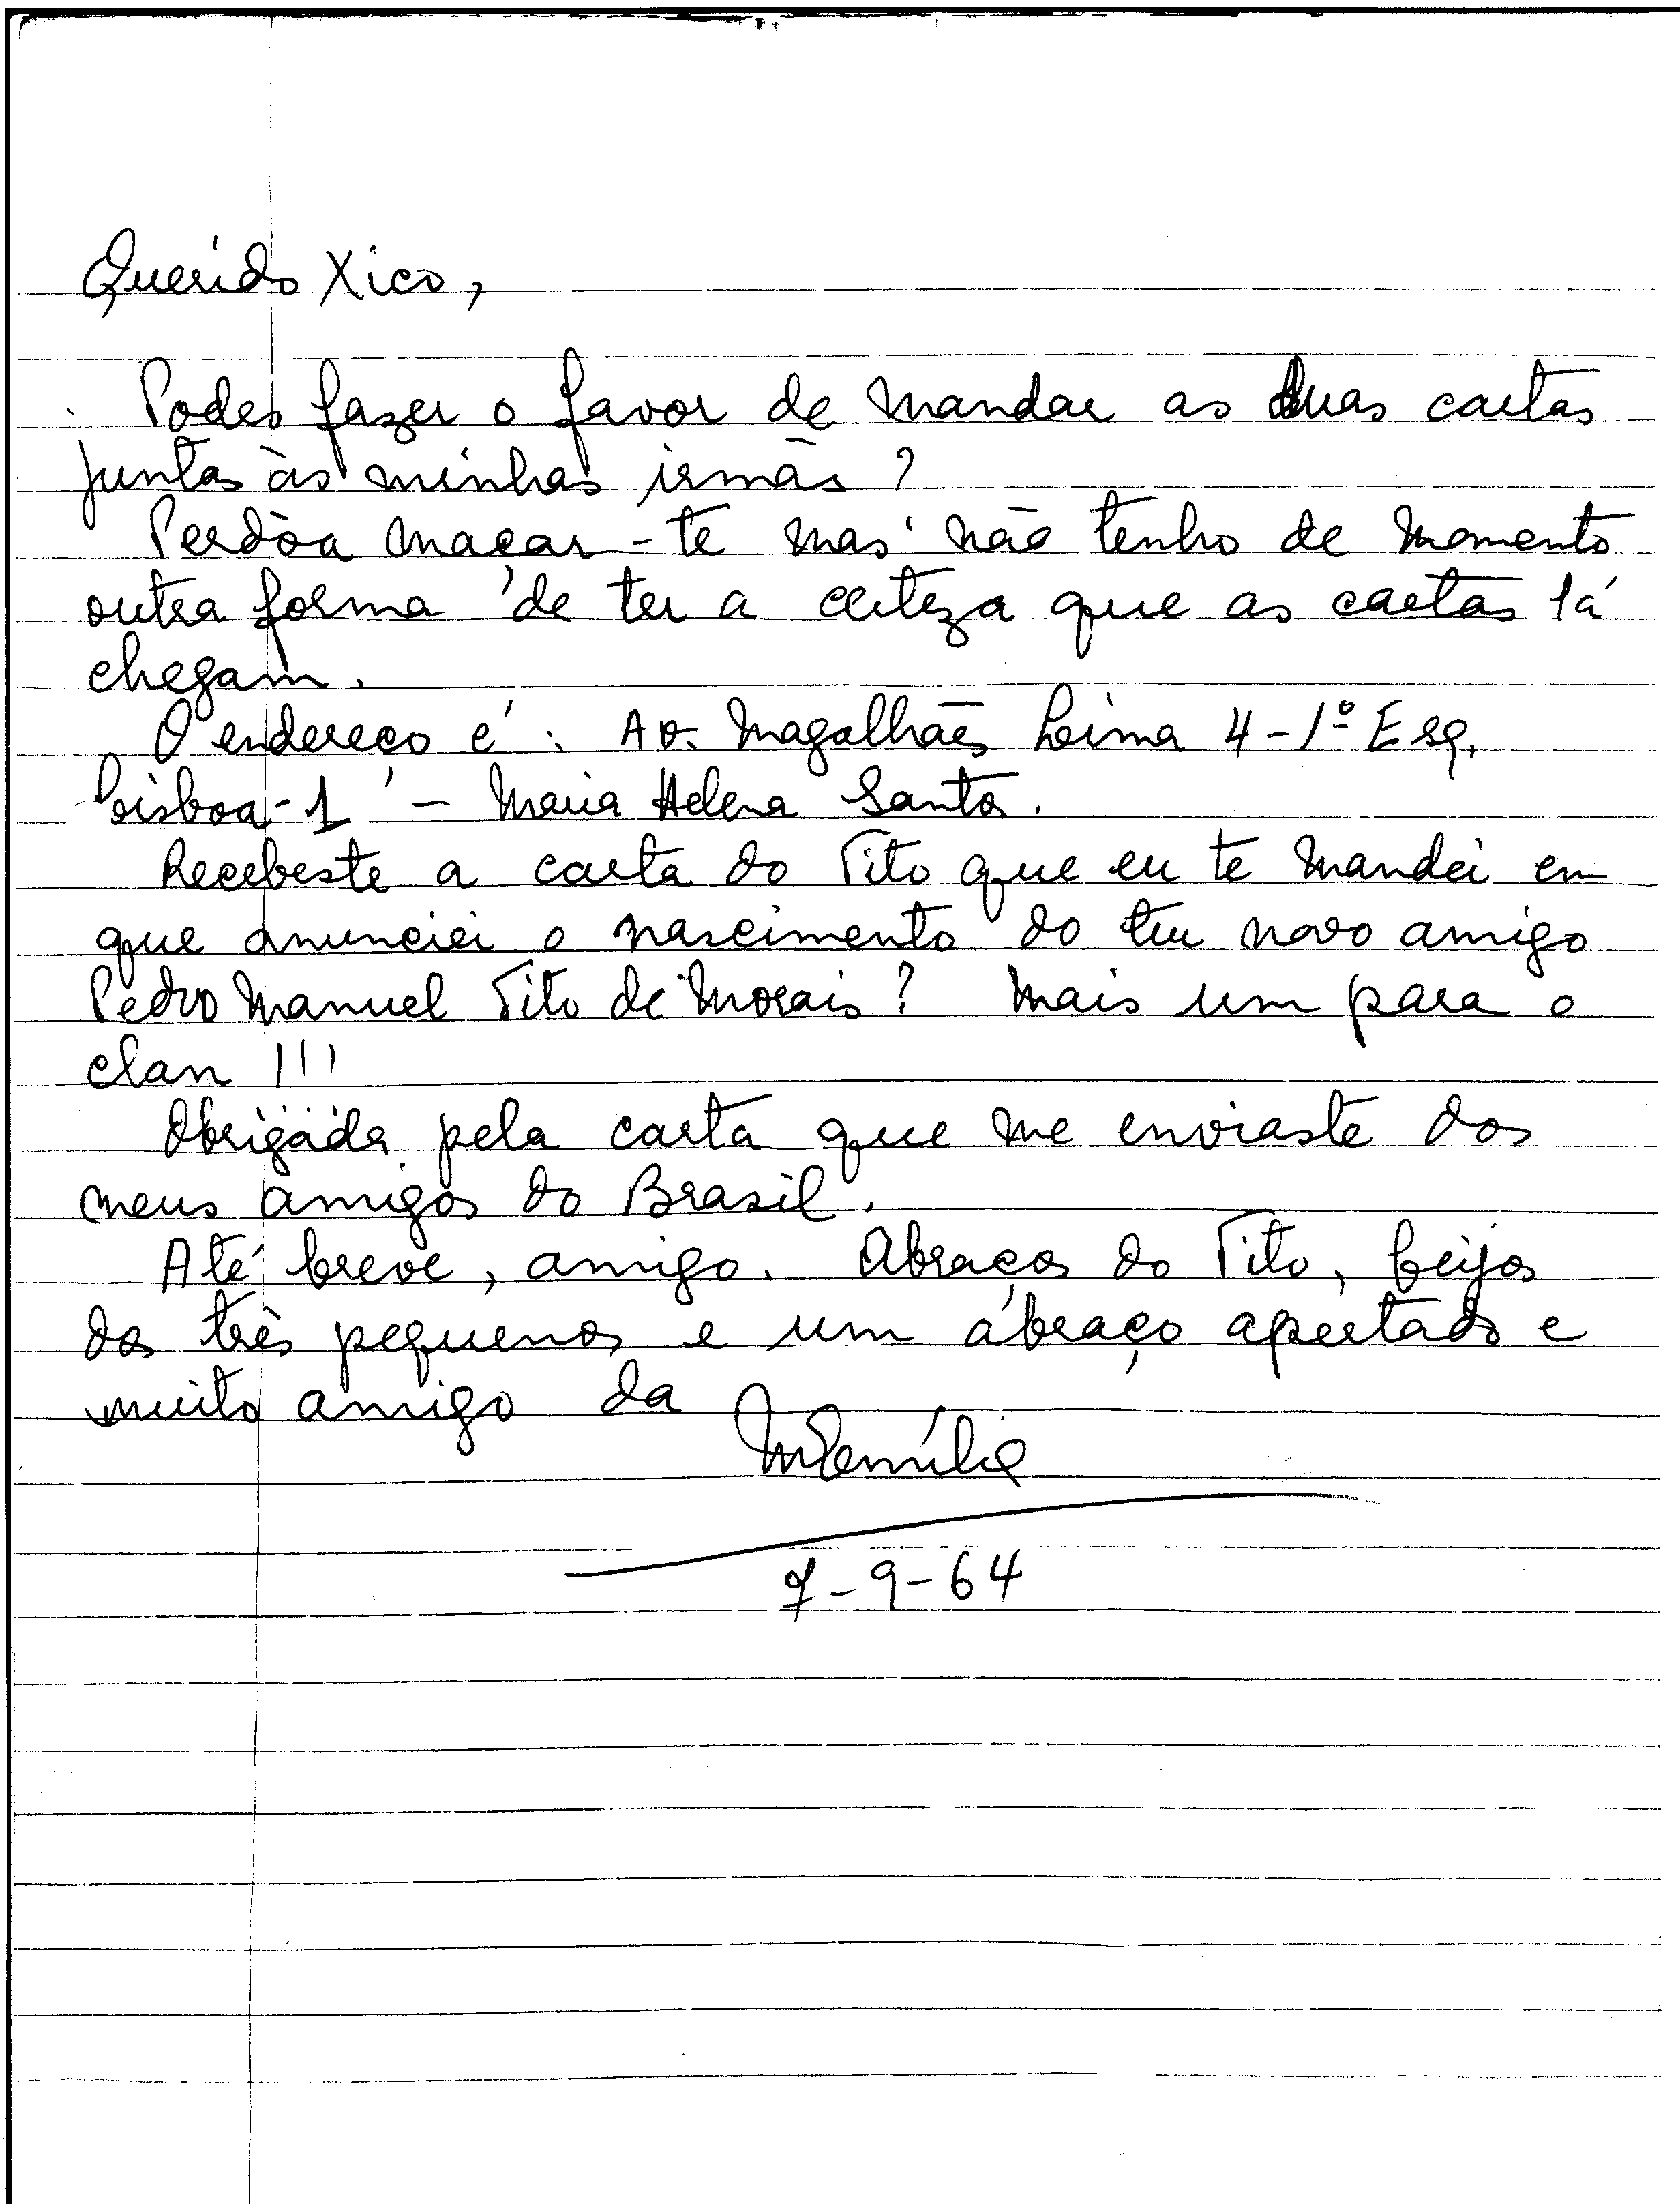 Querido Xico,
Podes fazer o favor de mandar as duas cartas
juntas às minhas irmãs?
Perdòa maçar-te mas não tenho de momento
outra forma de ter a certeza que as cartas lá
chegam.
O endereço é: Av. Magalhães Lima 4-1º Esq.
Lisboa-1 - Maria Helena Santos.
Recebeste a carta do Tito que eu te mandei em
que anunciei o nascimento do teu novo amigo
Pedro Manuel Tito de Morais? Mais um para o
clan!!!
Obrigada pela carta que me enviaste dos
meus amigos do Brasil.
Até breve, amigo. Abraços do Tito, beijos
dos três pequenos e um abraço apertado e
muito amigo da
MEmília
7-9-64